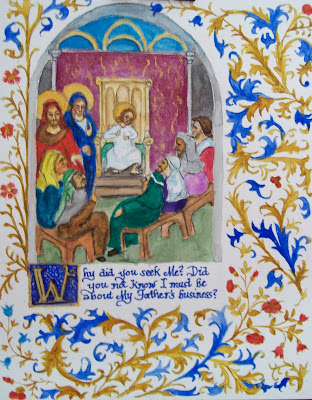 Why did you seek Me? Did
you not know I must be
about My Father's business?